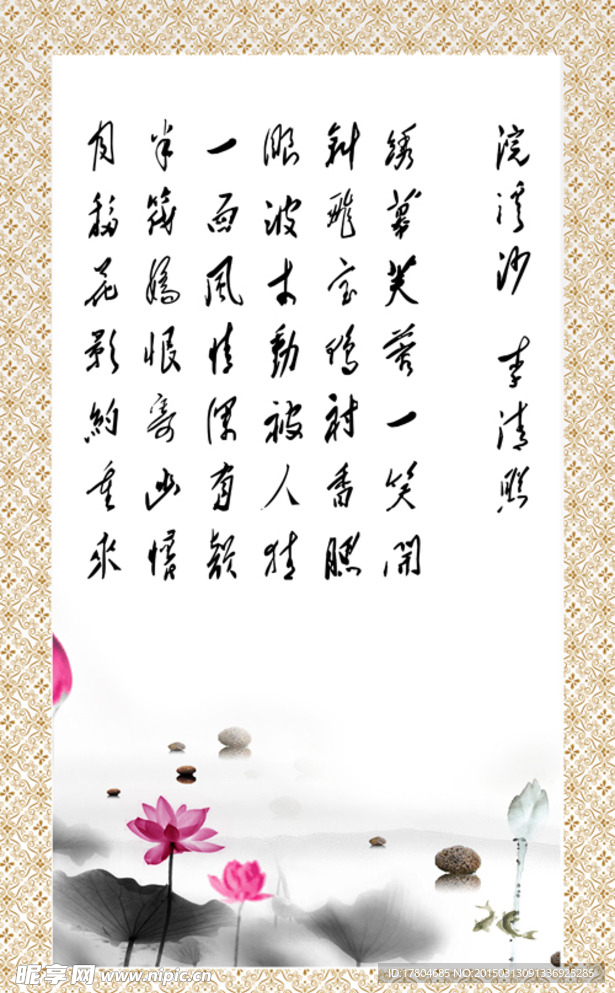 浣溪沙 李清照
綉幕芙蓉一笑開
斜飛宝鴨衬香腮
眼波才動被人猜
一面風情深有韻
半箋嬌恨寄幽懷
月移花影約重來
昵享网 www.nipic.cn
ID:17804685 NO:20150313091336925285